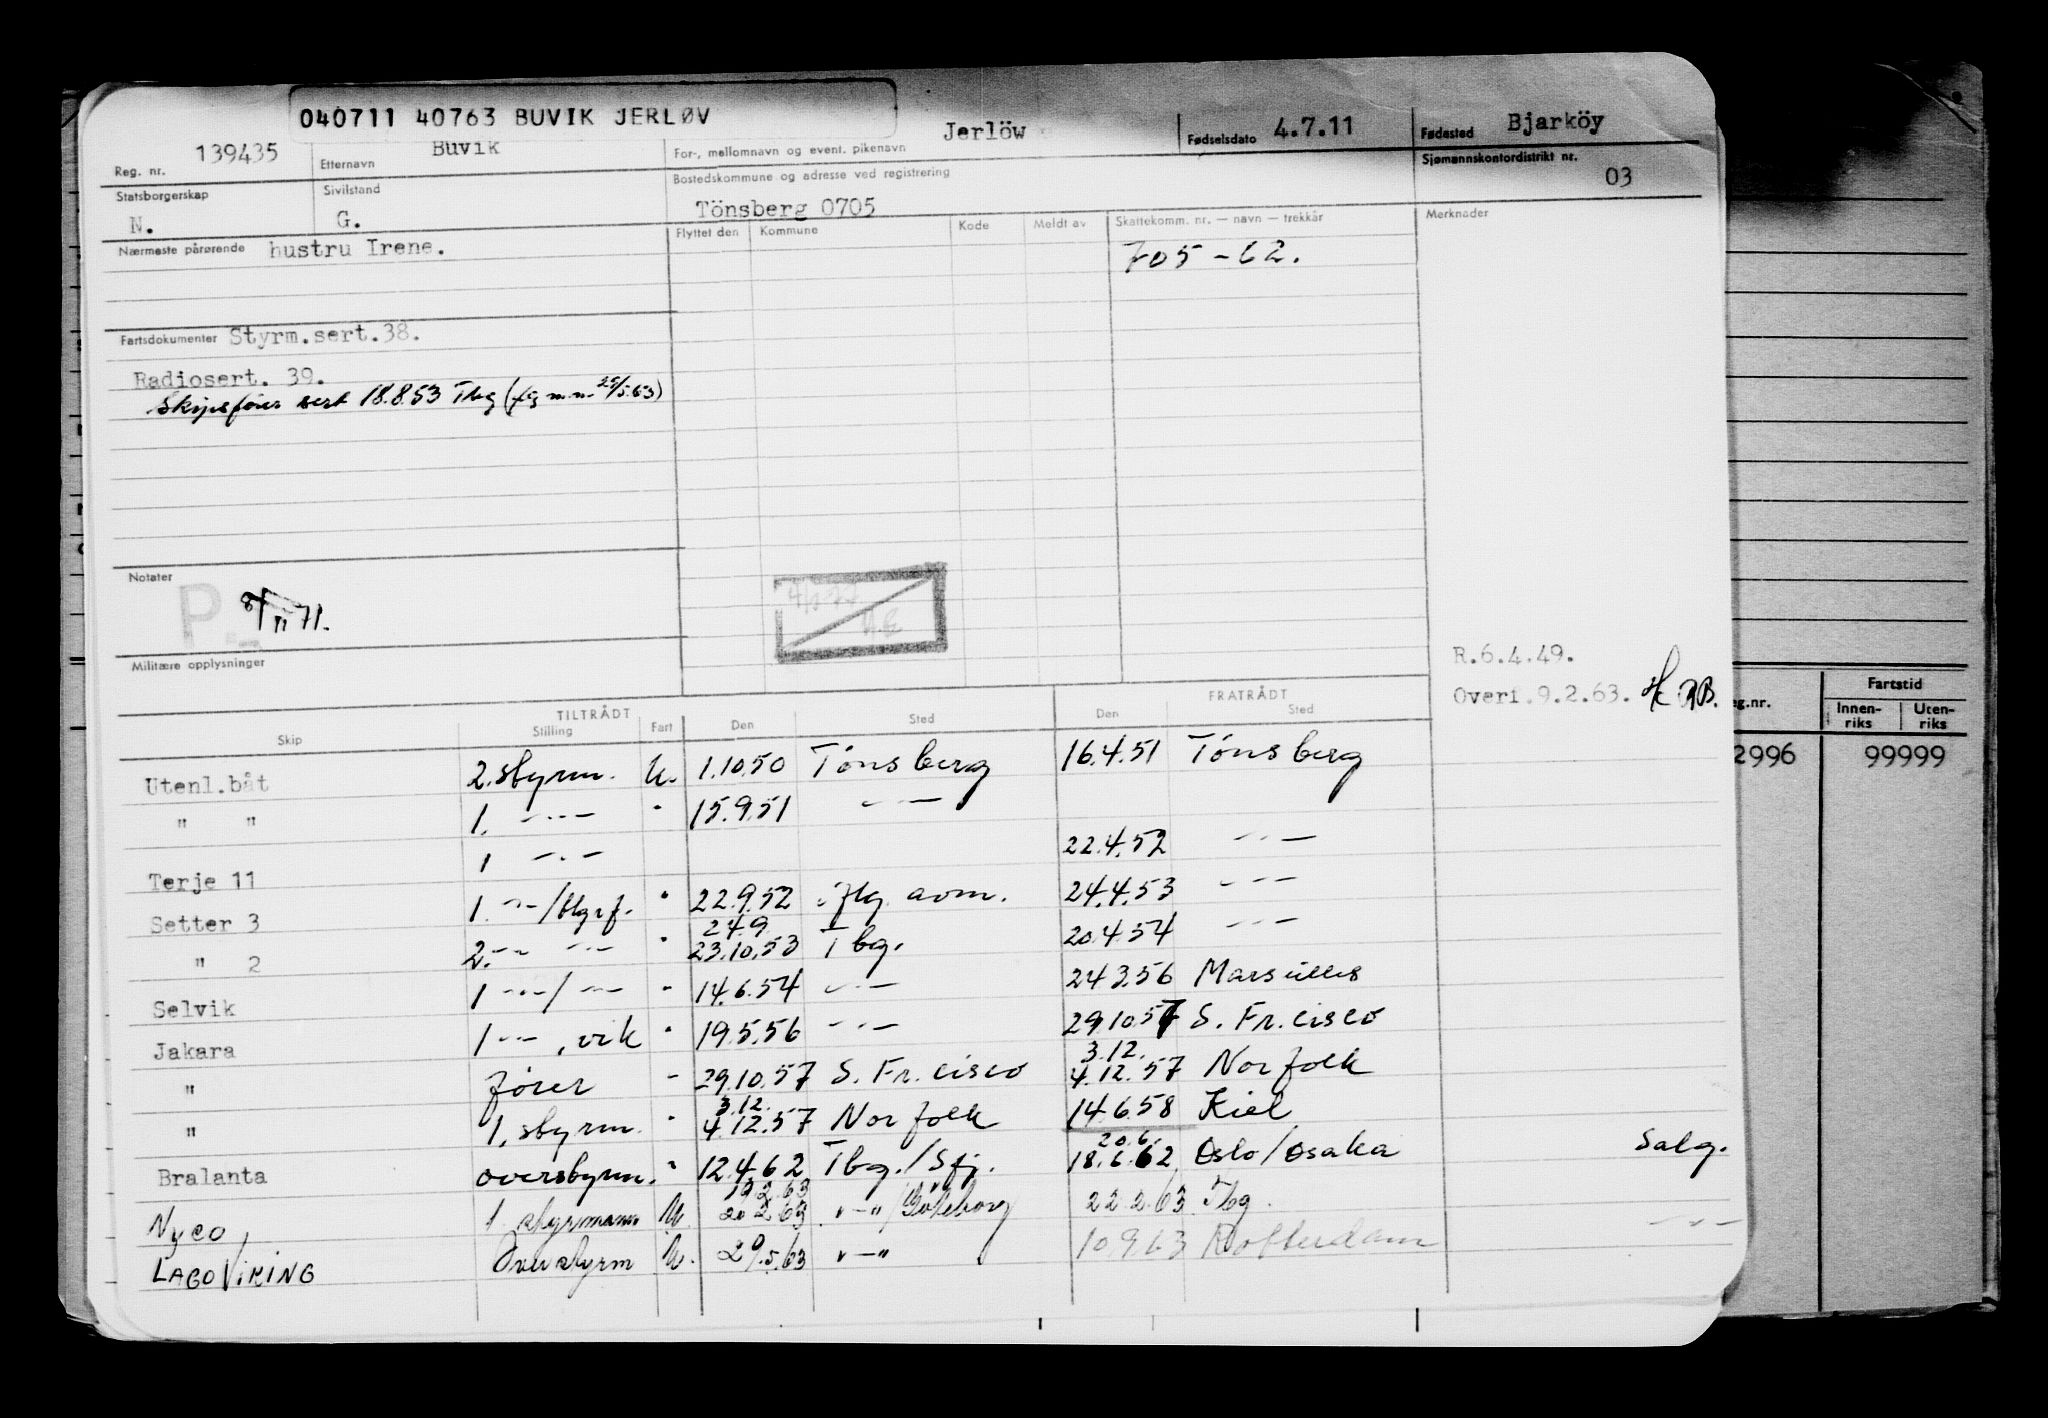 040711 40763 BUVIK JERLØV
Reg. nr. 139435
Etternavn Buvik
For-, mellomnavn og event. pikenavn Jerlöw
Fødselsdato 4.7.11
Fødested Bjarköy
Statsborgerskap N.
Sivilstand G.
Bostedskommune og adresse ved registrering
Tönsberg 0705
Sjømannskontordistrikt nr. 03
Nærmeste pårørende hustru Irene.
Flyttet den Kommune Kode Meldt av
Skattekomm. nr. — navn — trekkår
705-62.
Merknader
Fartsdokumenter Styrm.sert.38.
Radiosert. 39.
Skipsfører sert 18.8.53 Tbg
Notater
P
71.
Militære opplysninger
R.6.4.49.
Overf.9.2.63.
TILTRÅDT FRATRÅDT
Skip Stilling Fart Den Sted Den Sted
Utenl.båt 2.styrm. U. 1.10.50 Tönsberg 16.4.51 Tönsberg
" " 1. -"- " 15.9.51 -"-
Terje 11 1 -"- 22.4.52 -"-
Setter 3 1. -"- " 22.9.52 24.4.53 -"-
" 2 2. -"- -"- " 24.9 23.10.53 Tbg. 20.4.54 -"-
Selvik 1 -"-/-"- " 14.6.54 -"- 24.3.56 Marseilles
Jakara 1 -"-, vik " 19.5.56 -"- 29.10.57 S. Fr.cisco
" fører - 29.10.57 S. Fr.cisco 3.12. 4.12.57 Norfolk
" 1. styrm. " 3.12. 4.12.57 Norfolk 14.6.58 Kiel
Bralanta overstyrm. " 12.4.62 Tbg./Sfj. 20.6. 18.6.62 Oslo/Osaka Salg.
Nyco, 1. styrmann U 19.2.63 20.2.63 "-"/Göteborg 22.2.63 Tbg.
LAGOVIKING Overstyrm U. 29.5.63 "-" 10.9.63 Rotterdam -"-
eg.nr. Fartstid
Innen-riks Uten-riks
2996 99999